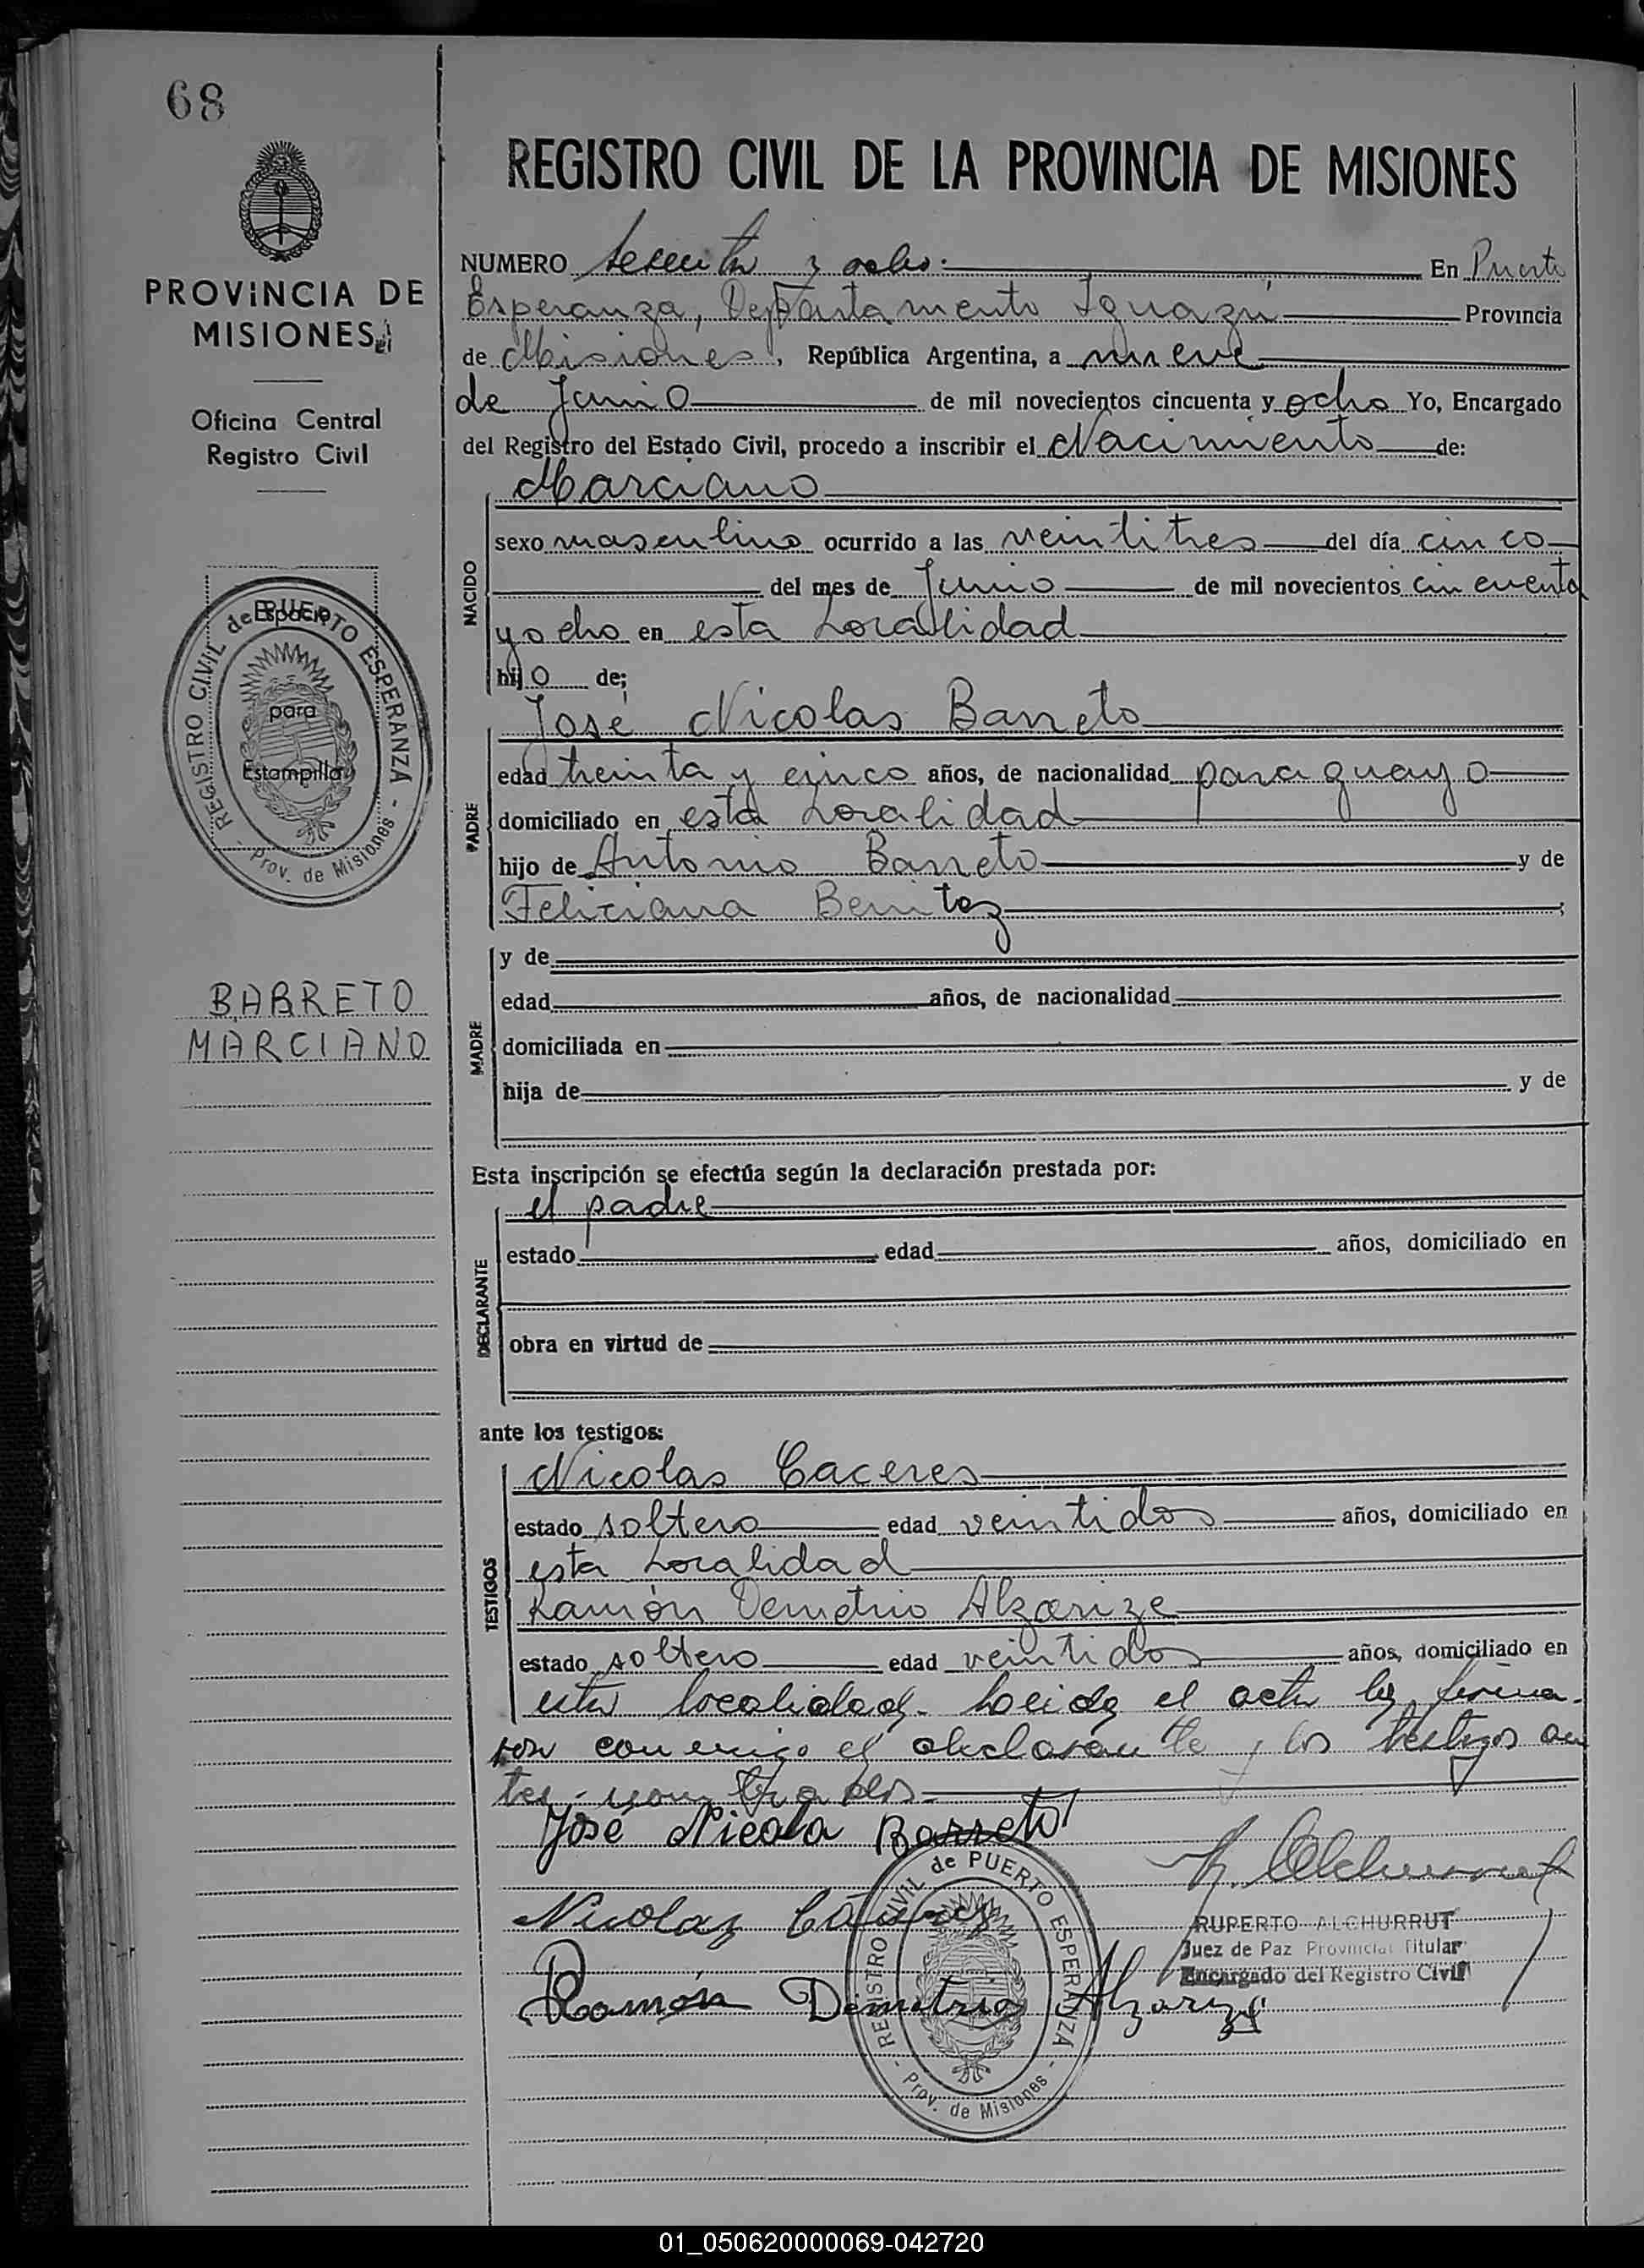 68
PROVINCIA DE
MISIONES
Oficina Central
Registro Civil
Espacio
para
Estampilla
REGISTRO CIVIL de PUERTO ESPERANZA
- Prov. de Misiones -
BARRETO
MARCIANO
REGISTRO CIVIL DE LA PROVINCIA DE MISIONES
NUMERO sesenta y ocho.- En Puerto
Esperanza, Departamento Iguazú Provincia
de Misiones, República Argentina, a nueve
de Junio de mil novecientos cincuenta y ocho Yo, Encargado
del Registro del Estado Civil, procedo a inscribir el Nacimiento de:
NACIDO
Marciano
sexo masculino ocurrido a las veintitres del día cinco
del mes de Junio de mil novecientos cincuenta
y ocho en esta Localidad
hijo de;
PADRE
José Nicolas Barreto
edad treinta y cinco años, de nacionalidad paraguayo
domiciliado en esta Localidad
hijo de Antonio Barreto y de
Feliciana Benitez ;
MADRE
y de
edad años, de nacionalidad
domiciliada en
hija de y de
Esta inscripción se efectúa según la declaración prestada por:
DECLARANTE
el padre
estado edad años, domiciliado en
obra en virtud de
ante los testigos:
TESTIGOS
Nicolas Caceres
estado soltero edad veintidos años, domiciliado en
esta Localidad
Ramón Demetrio Alzarize
estado soltero edad veintidos años, domiciliado en
esta localidad. Leida el acta la firma-
ron conmigo el declarante y los testigos an
tes nombrados.-
José Nicola Barreto
Nicolaz Cáceres
Ramón Demetrio Alzarize
RUPERTO ALCHURRUT
Juez de Paz Provincial Titular
Encargado del Registro Civil
REGISTRO CIVIL de PUERTO ESPERANZA
- Prov. de Misiones -
01_050620000069-042720